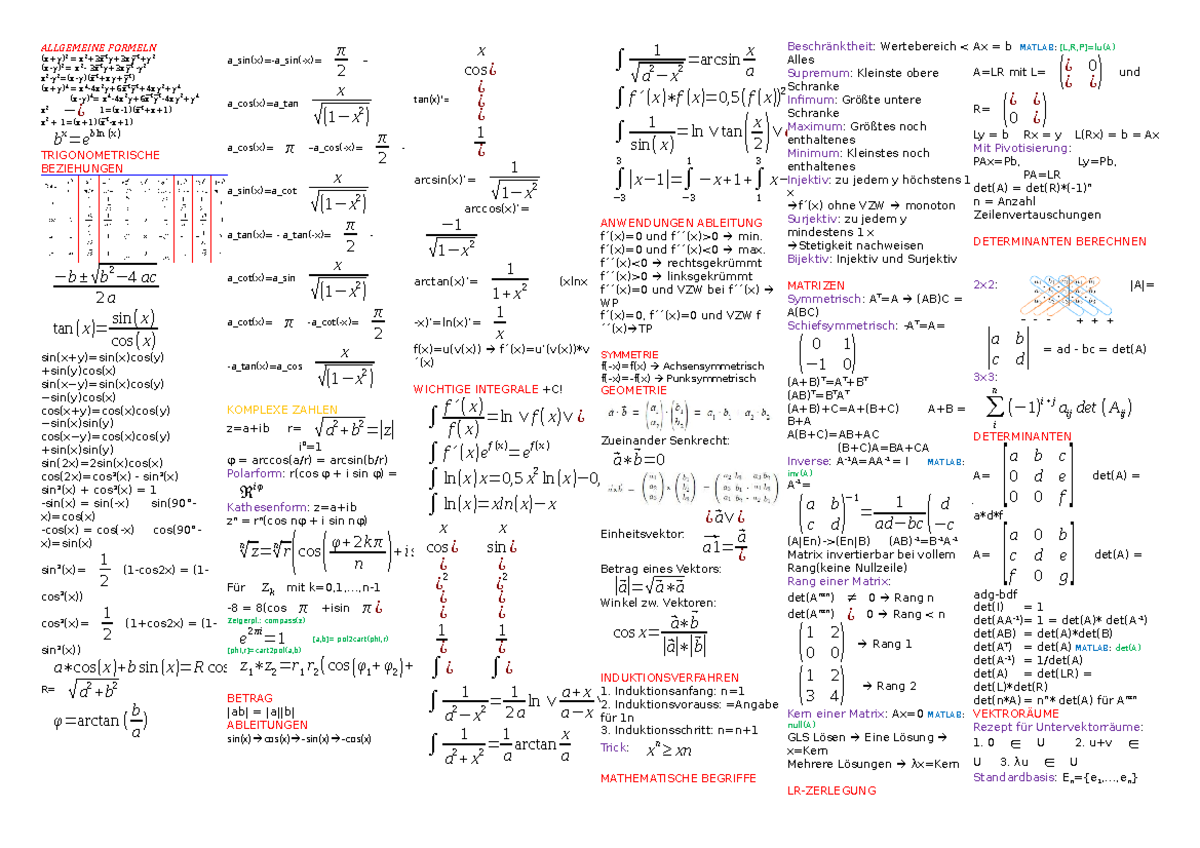 ALLGEMEINE FORMELN
b^x=e^{b ln(x)}
TRIGONOMETRISCHE
BEZIEHUNGEN
(-b±√(b²-4ac))/(2a)
tan(x)=sin(x)/cos(x)
sin(x+y)=sin(x)cos(y)
+sin(y)cos(x)
sin(x−y)=sin(x)cos(y)
−sin(y)cos(x)
cos(x+y)=cos(x)cos(y)
−sin(x)sin(y)
cos(x−y)=cos(x)cos(y)
+sin(x)sin(y)
sin(2x)=2sin(x)cos(x)
cos(2x)=cos²(x) - sin²(x)
sin²(x) + cos²(x) = 1
-sin(x) = sin(-x) sin(90°-
x)=cos(x)
-cos(x) = cos(-x) cos(90°-
x)=sin(x)
a*cos(x)+b sin(x)=R cos
R= √(a²+b²)
φ=arctan(b/a)
a_sin(x)=-a_sin(-x)= π/2 -
a_cos(x)=a_tan x/√(1−x²)
a_cos(x)= π -a_cos(-x)= π/2 -
a_sin(x)=a_cot x/√(1−x²)
a_tan(x)= - a_tan(-x)= π/2 -
a_cot(x)=a_sin x/√(1−x²)
a_cot(x)= π -a_cot(-x)= π/2
-a_tan(x)=a_cos x/√(1−x²)
KOMPLEXE ZAHLEN
z=a+ib r= √(a²+b²)=|z|
φ = arccos(a/r) = arcsin(b/r)
Polarform: r(cos φ + i sin φ) =
Kathesenform: z=a+ib
zⁿ = rⁿ(cos nφ + i sin nφ)
ⁿ√z=ⁿ√r(cos((φ+2kπ)/n)+i s
Für Z_k mit k=0,1,...,n-1
-8 = 8(cos π +isin π ¿
Zeigerpl.: compass(z)
e^{2πi}=1 [a,b]= pol2cart(phi,r)
[phi,r]=cart2pol(a,b)
z₁*z₂=r₁r₂(cos(φ₁+φ₂)+
BETRAG
|ab| = |a||b|
ABLEITUNGEN
sin(x)→cos(x)→-sin(x)→-cos(x)
x
cos¿
tan(x)'= ¿
¿
1/¿
arcsin(x)'= 1/√(1−x²)
arccos(x)'=
−1/√(1−x²)
arctan(x)'= 1/(1+x²) (xlnx
-x)'=ln(x)'= 1/x
f(x)=u(v(x)) → f´(x)=u'(v(x))*v
´(x)
WICHTIGE INTEGRALE +C!
∫ f´(x)/f(x)=ln∨f(x)∨¿
∫ f´(x)e^{f(x)}=e^{f(x)}
∫ ln(x)x=0,5x² ln(x)−0,
∫ ln(x)=xln(x)−x
x x
cos¿ sin¿
¿ ¿
¿² ¿²
¿ ¿
¿ ¿
1/¿ 1/¿
∫¿ ∫¿
∫ 1/(a²−x²)=1/(2a) ln∨(a+x)/(a−x)
∫ 1/(a²+x²)=1/a arctan x/a
∫ 1/√(a²−x²)=arcsin x/a
∫ f´(x)*f(x)=0,5(f(x))²
∫ 1/sin(x)=ln∨tan(x/2)∨¿
∫₋₃³|x−1|=∫₋₃¹−x+1+∫₁³x−
ANWENDUNGEN ABLEITUNG
f´(x)=0 und f´´(x)>0 → min.
f´(x)=0 und f´´(x)<0 → max.
f´´(x)<0 → rechtsgekrümmt
f´´(x)>0 → linksgekrümmt
f´´(x)=0 und VZW bei f´´(x) →
WP
f´(x)=0, f´´(x)=0 und VZW f
´´(x)→TP
SYMMETRIE
f(-x)=f(x) → Achsensymmetrisch
f(-x)=-f(x) → Punksymmetrisch
GEOMETRIE
Zueinander Senkrecht:
a⃗*b⃗=0
¿a⃗∨¿
Einheitsvektor: a1⃗=a⃗/¿
Betrag eines Vektors:
|a⃗|=√(a⃗*a⃗)
Winkel zw. Vektoren:
cos x=(a⃗*b⃗)/(|a⃗|*|b⃗|)
INDUKTIONSVERFAHREN
1. Induktionsanfang: n=1
2. Induktionsvorauss: =Angabe
für 1n
3. Induktionsschritt: n=n+1
Trick: xⁿ≥xn
MATHEMATISCHE BEGRIFFE
Beschränktheit: Wertebereich <
Alles
Supremum: Kleinste obere
Schranke
Infimum: Größte untere
Schranke
Maximum: Größtes noch
enthaltenes
Minimum: Kleinstes noch
enthaltenes
Injektiv: zu jedem y höchstens 1
x
→f´(x) ohne VZW → monoton
Surjektiv: zu jedem y
mindestens 1 x
→Stetigkeit nachweisen
Bijektiv: Injektiv und Surjektiv
MATRIZEN
Symmetrisch: Aᵀ=A → (AB)C =
A(BC)
Schiefsymmetrisch: -Aᵀ=A=
(0 1
−1 0)
(A+B)ᵀ=Aᵀ+Bᵀ
(AB)ᵀ=BᵀAᵀ
(A+B)+C=A+(B+C) A+B =
B+A
A(B+C)=AB+AC
(B+C)A=BA+CA
Inverse: A⁻¹A=AA⁻¹ = I MATLAB:
inv(A)
A⁻¹=
(a b
c d)⁻¹=1/(ad−bc)(d
−c
(A|En)->(En|B) (AB)⁻¹=B⁻¹A⁻¹
Matrix invertierbar bei vollem
Rang(keine Nullzeile)
Rang einer Matrix:
det(Aⁿˣⁿ) ≠ 0 → Rang n
det(Aⁿˣⁿ) ¿ 0 → Rang < n
(1 2
0 0) → Rang 1
(1 2
3 4) → Rang 2
Kern einer Matrix: Ax=0 MATLAB:
null(A)
GLS Lösen → Eine Lösung →
x=Kern
Mehrere Lösungen → λx=Kern
LR-ZERLEGUNG
Ax = b MATLAB: [L,R,P]=lu(A)
A=LR mit L= (¿ 0
¿ ¿) und
R= (¿ ¿
0 ¿)
Ly = b Rx = y L(Rx) = b = Ax
Mit Pivotisierung:
PAx=Pb, Ly=Pb,
PA=LR
det(A) = det(R)*(-1)ⁿ
n = Anzahl
Zeilenvertauschungen
DETERMINANTEN BERECHNEN
2×2: |A|=
|a b
c d| = ad - bc = det(A)
3x3:
∑ᵢⁿ(−1)^{i+j} a_ij det(A_ij)
DETERMINANTEN
A= [a b c
0 d e
0 0 f] det(A) =
a*d*f
A= [a 0 b
c d e
f 0 g] det(A) =
adg-bdf
det(I) = 1
det(AA⁻¹)= 1 = det(A)* det(A⁻¹)
det(AB) = det(A)*det(B)
det(Aᵀ) = det(A) MATLAB: det(A)
det(A⁻¹) = 1/det(A)
det(A) = det(LR) =
det(L)*det(R)
det(n*A) = nⁿ* det(A) für Aⁿˣⁿ
VEKTRORÄUME
Rezept für Untervektorräume:
1. 0 ∈ U 2. u+v ∈
U 3. λu ∈ U
Standardbasis: Eₙ={e₁,...,eₙ}